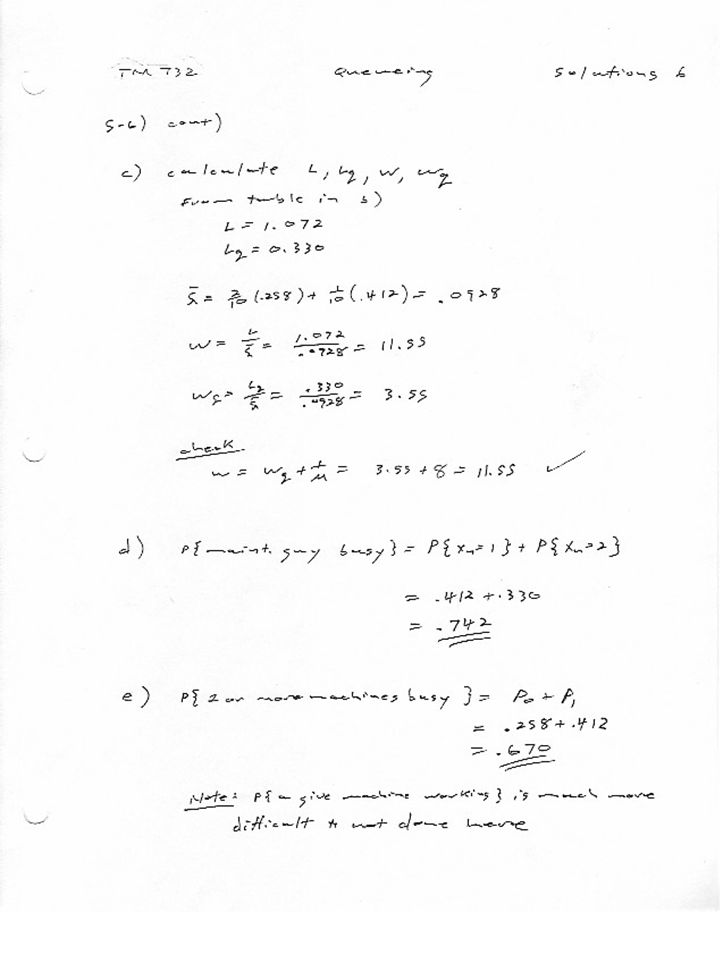 TM 732 Queueing Solutions 6
5-6) cont)
c) calculate L, Lq, W, Wq
From table in b)
L = 1.072
Lq = 0.330
λ̄ = 2/10 (.258) + 1/10 (.412) = .0928
W = L/λ̄ = 1.072/.0928 = 11.55
Wq = Lq/λ̄ = .330/.0928 = 3.55
check
W = Wq + 1/μ = 3.55 + 8 = 11.55 ✓
d) P{maint. guy busy} = P{Xn=1} + P{Xn=2}
= .412 + .330
= .742
e) P{2 or more machines busy} = P0 + P1
= .258 + .412
= .670
Note: P{a give machine working} is much more
difficult & not done here